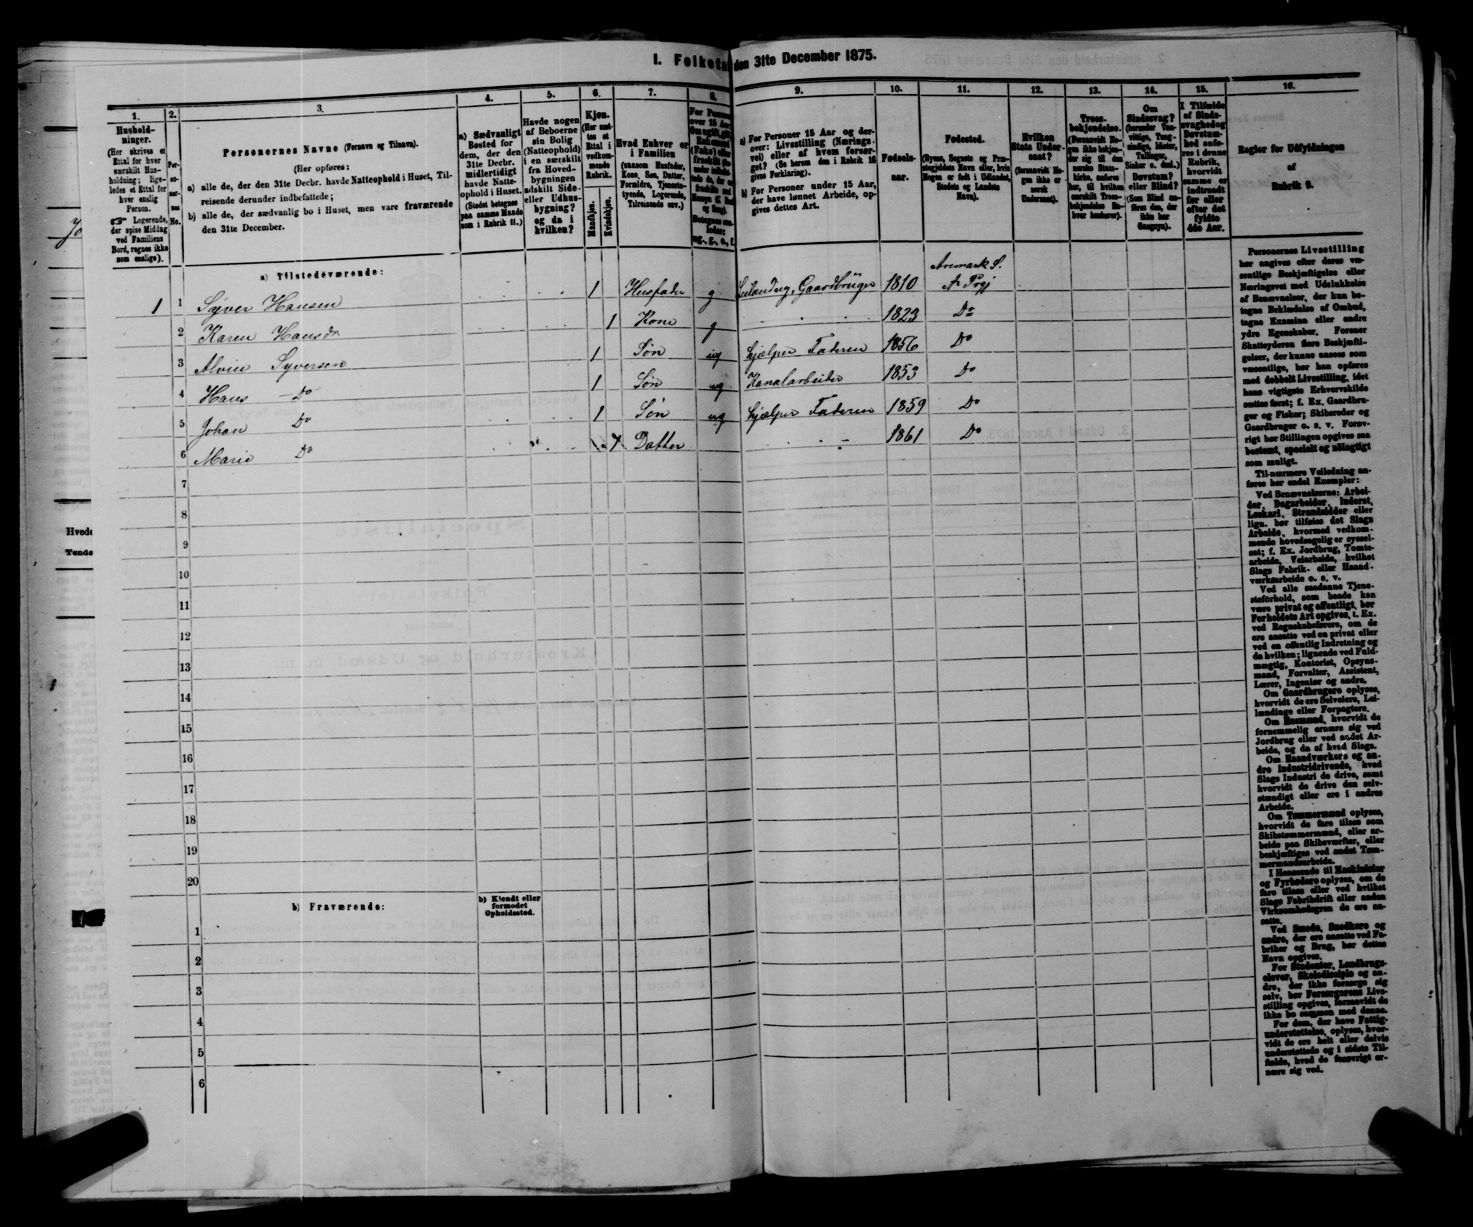 1. Folketal den 31te December 1875.
1.
2.
3.
4.
5.
6.
7.
8.
9.
10.
11.
12.
13.
14.
15.
16.
Hushold-
ninger.
(Her skrives et
Ettal for hver
særskilt Hus-
holdning; lige-
ledes et Ettal for
hver enslig
Person.
☞ Logerende,
der spise Middag
ved Familiens
Bord, regnes ikke
som enslige).
Per-
so-
ner-
nes
No.
Personernes Navne (Fornavn og Tilnavn).
(Her opføres:
a) alle de, der den 31te Decbr. havde Natteophold i Huset, Til-
reisende derunder indbefattede;
b) alle de, der sædvanlig bo i Huset, men vare fraværende
den 31te December.
a) Sædvanligt
Bosted for
dem, der den
31te Decbr.
midlertidigt
havde Natte-
ophold i Huset.
(Stedet betegnes
paa samme Maade
som i Rubrik 11.)
Havde nogen
af Beboerne
sin Bolig
(Natteophold)
i en særskilt
fra Hoved-
bygningen
adskilt Side-
eller Udhus-
bygning?
og da i
hvilken?
Kjøn.
Mandkjøn.
Kvindekjøn.
Hvad Enhver er
i Familien
(saasom Husfader,
Kone, Søn, Datter,
Forældre, Tjeneste-
tyende, Logerende,
Tilreisende osv.)
a) For Personer 15 Aar og der-
over: Livsstilling (Nærings-
vei) eller af hvem forsør-
get? (Se herom den i Rubrik 16
givne Forklaring).
b) For Personer under 15 Aar,
der have lønnet Arbeide, op-
gives dettes Art.
Fødsels-
aar.
Fødested.
(Byens, Sognets og Præ-
stegjeldets Navn eller, hvis
Nogen er født i Udlandet,
Stedets og Landets
Navn).
Hvilken
Stats Under-
saat?
(forsaavidt No-
gen ikke er
norsk
Undersaat).
Troes-
bekjendelse.
Om
Sindssvag?
Døvstum?
eller Blind?
I Tilfælde
af Sinds-
svaghed og
Døvstum-
hed anfø-
res i denne
Rubrik,
hvorvidt
samme er
indtraadt
før eller
efter det
fyldte
4de Aar.
Regler for Udfyldningen
af
Rubrik 9.
a) Tilstedeværende:
1 1 Syver Hansen 1 Husfader g Leilending, Gaardbruger 1810 Aremark S. A Prgj
2 Karen Hansdr 1 Kone g 1823 Do
3 Alvin Syversen 1 Søn ug hjælper Faderen 1856 Do
4 Hans Do 1 Søn ug Kanalarbeider 1853 Do
5 Johan Do 1 Søn ug hjælper Faderen 1859 Do
6 Marie Do 1 Datter 1861 Do
7
8
9
10
11
12
13
14
15
16
17
18
19
20
b) Fraværende:
b) Kjendt eller
formodet
Opholdssted.
1
2
3
4
5
6
Personernes Livsstilling
bør angives efter deres væ-
sentlige Beskjæftigelse eller
Næringsvei med Udelukkelse
af Benævnelser, der kun be-
tegne Beklædelse af Ombud,
tegne Examina eller andre
ydre Egenskaber. Forener
Skatteyderen flere Beskjæfti-
gelser, der kunne ansees som
væsentlige, bør han opføres
med dobbelt Livsstilling, idet
hans vigtigste Erhvervskilde
sættes først; f. Ex. Gaardbru-
ger og Fisker; Skibsreder og
Gaardbruger o. s. v. Forøv-
rigt bør Stillingen opgives saa
bestemt, specielt og nøiagtigt
som muligt.
Til nærmere Veiledning an-
føres her endel Exempler:
Ved Benævnelserne: Arbei-
der, Dagarbeider, Inderst,
Løskarl, Strandsidder eller
lign. bør tilføies det Slags
Arbeide, hvormed vedkom-
mende hovedsagelig er syssel-
sat; f. Ex. Jordbrug, Tomte-
arbeide, Veiarbeide, hvilket
Slags Fabrik- eller Haand-
værksarbeide o. s. v.
Ved alle saadanne Tjene-
steforhold, som baade kan
være privat og offentligt, bør
Forholdets Art opgives, t. Ex.
ved Regnskabsførere, om de
ere ansatte ved en privat eller
ved en offentlig Indretning og
da hvilken; lignende ved Fuld-
mægtig, Kontorist, Opsyns-
mand, Forvalter, Assistent,
Lærer, Ingeniør og andre.
Om Gaardbrugere oplyses,
hvorvidt de ere Selveiere, Lei-
lændinge eller Forpagtere.
Om Husmænd, hvorvidt de
fornemmelig ernære sig ved
Jordbrug eller ved andet Ar-
beide, og da af hvad Slags.
Om Haandværkere og an-
dre Industridrivende, hvad
Slags Industri de drive, samt
hvorvidt de drive den selv-
stændigt eller ere i andres
Arbeide.
Om Tømmermænd oplyses,
hvorvidt de fare tilsøs som
Skibstømmermænd, eller ar-
beide paa Skibsværfter, eller
beskjæftiges ved andet Tøm-
mermandsarbeide.
I Henseende til Maskinister
og Fyrbødere oplyses, om de
fare tilsøs eller ved hvilket
Slags Fabrikdrift eller anden
Virksomhedsgren de ere an-
satte.
Ved Smede, Snedkere og
andre, der ere ansatte ved Fa-
briker og Brug, bør dettes
Navn opgives.
For Studenter, Landbrugs-
elever, Skoledisciple og an-
dre, der ikke forsørge sig
selv, bør Forsørgerens Livs-
stilling opgives, forsaavidt de
ikke bo sammen med denne.
For dem, der have Fattig-
understøttelse, oplyses, hvor-
vidt de ere helt eller delvis
understøttede og i sidste Til-
fælde, hvad de forøvrigt er-
nære sig ved.